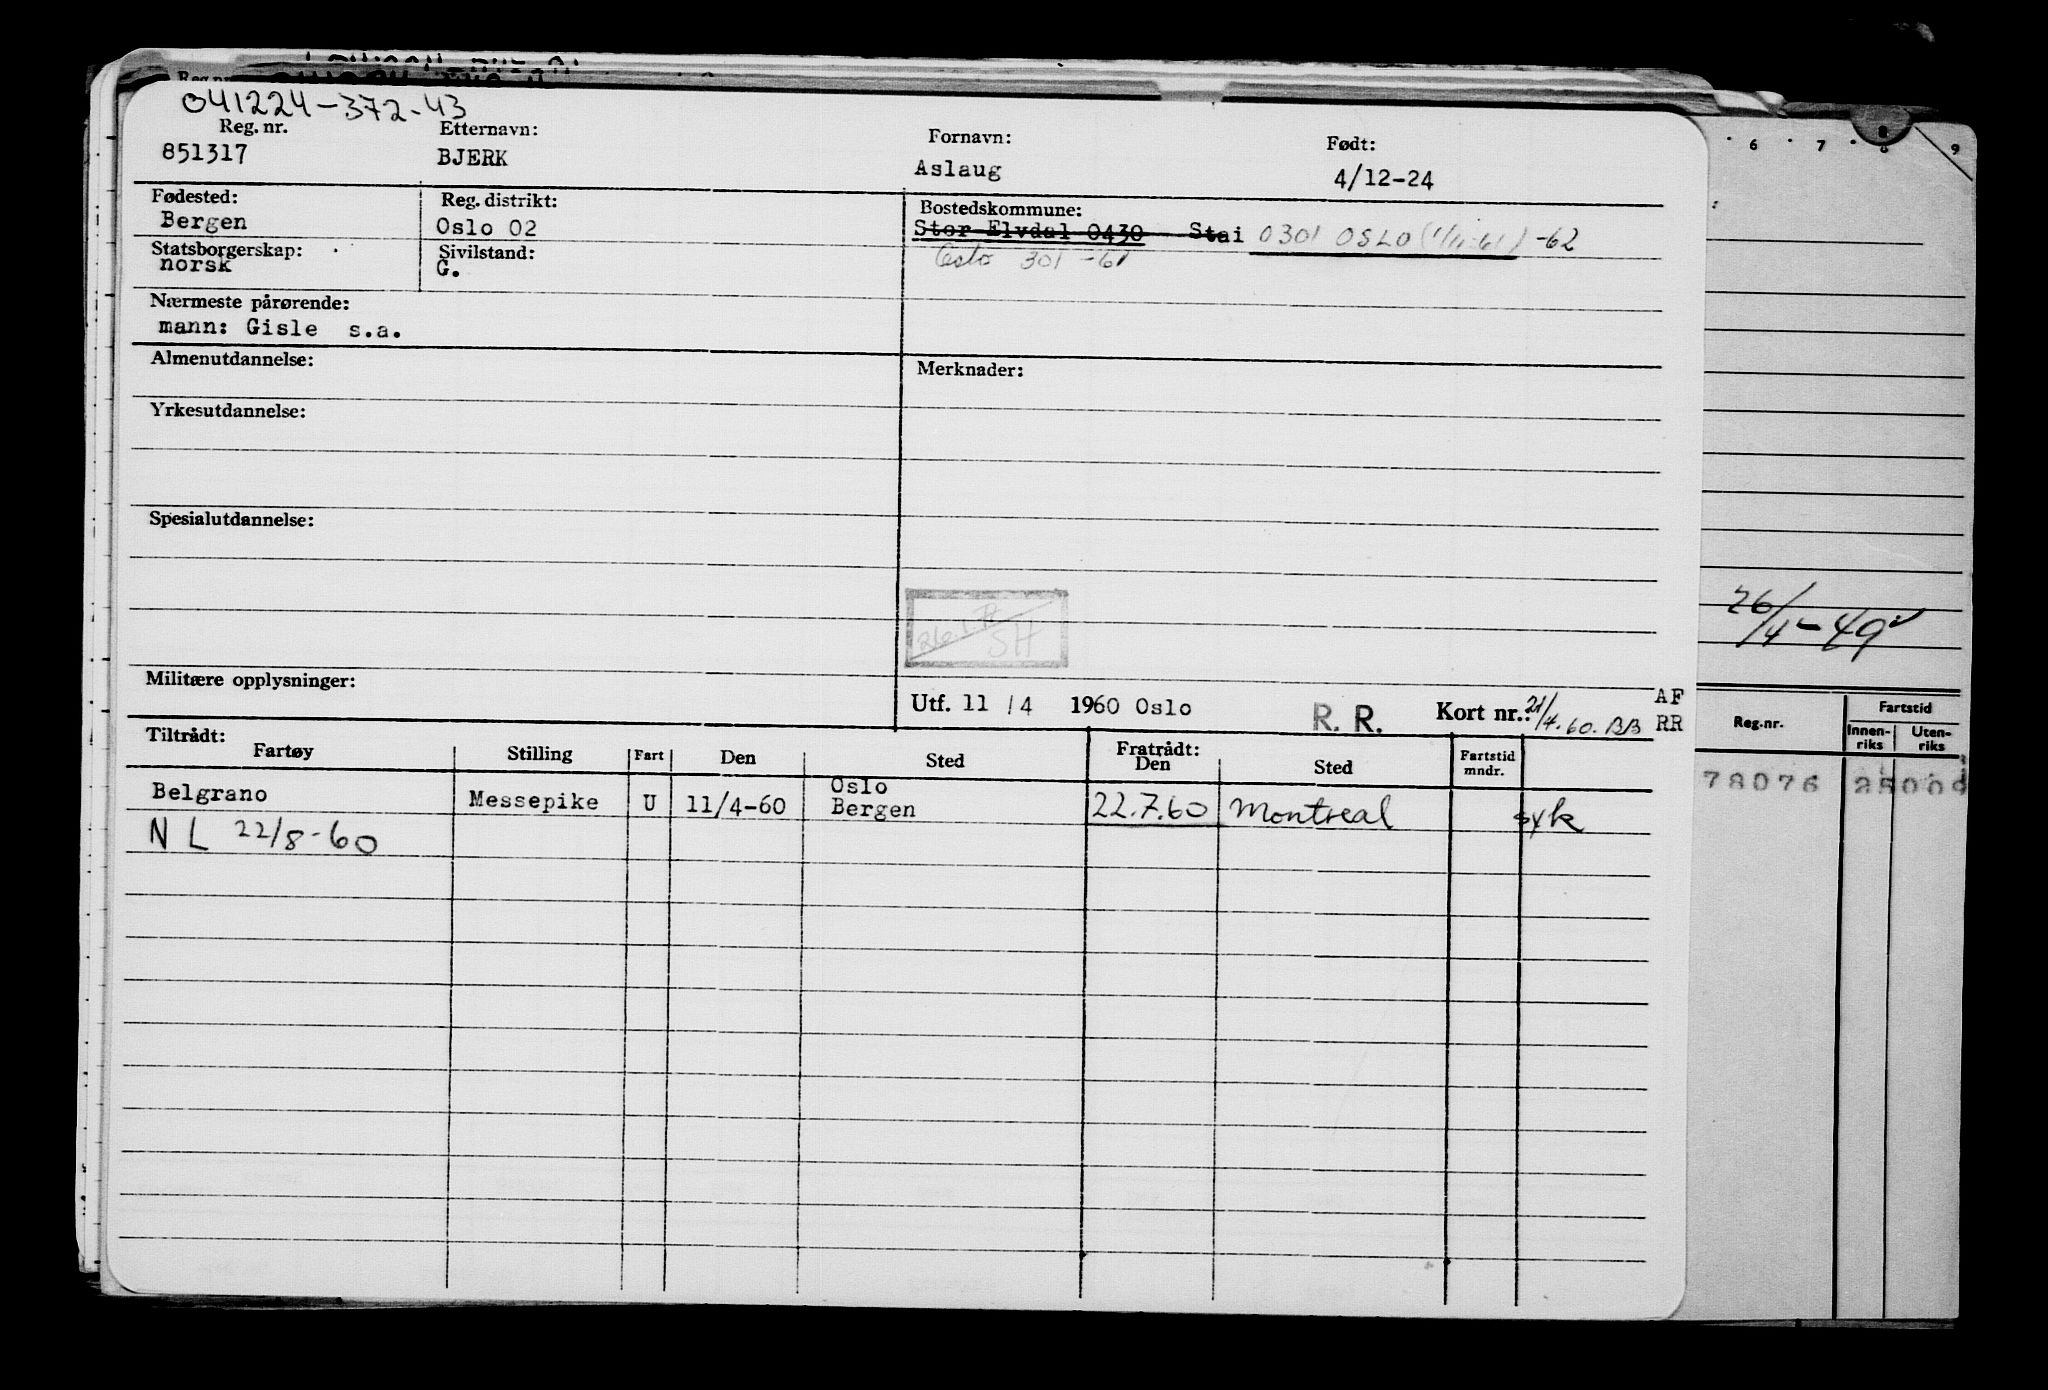 041224-372-43
Reg. nr. Etternavn: Fornavn: Født:
851317 BJERK Aslaug 4/12-24
Fødested: Reg. distrikt: Bostedskommune:
Bergen Oslo 02 Stor-Elvdal 0430 Stai 0301 OSLO (1/11-61) -62
Statsborgerskap: Sivilstand: Oslo 301 -61
norsk G.
Nærmeste pårørende:
mann: Gisle s.a.
Almenutdannelse: Merknader:
Yrkesutdannelse:
Spesialutdannelse:
SH
Militære opplysninger:
Utf. 11 /4 1960 Oslo R. R. Kort nr.: 21/4.60. BB AF RR
Tiltrådt: Fratrådt:
Fartøy Stilling Fart Den Sted Den Sted Fartstid mndr.
Belgrano Messepike U 11/4-60 Oslo Bergen 22.7.60 Montreal syk
N L 22/8-60
6 7 8 9
26/4-49
Reg.nr. Fartstid
Innen-riks Uten-riks
78076